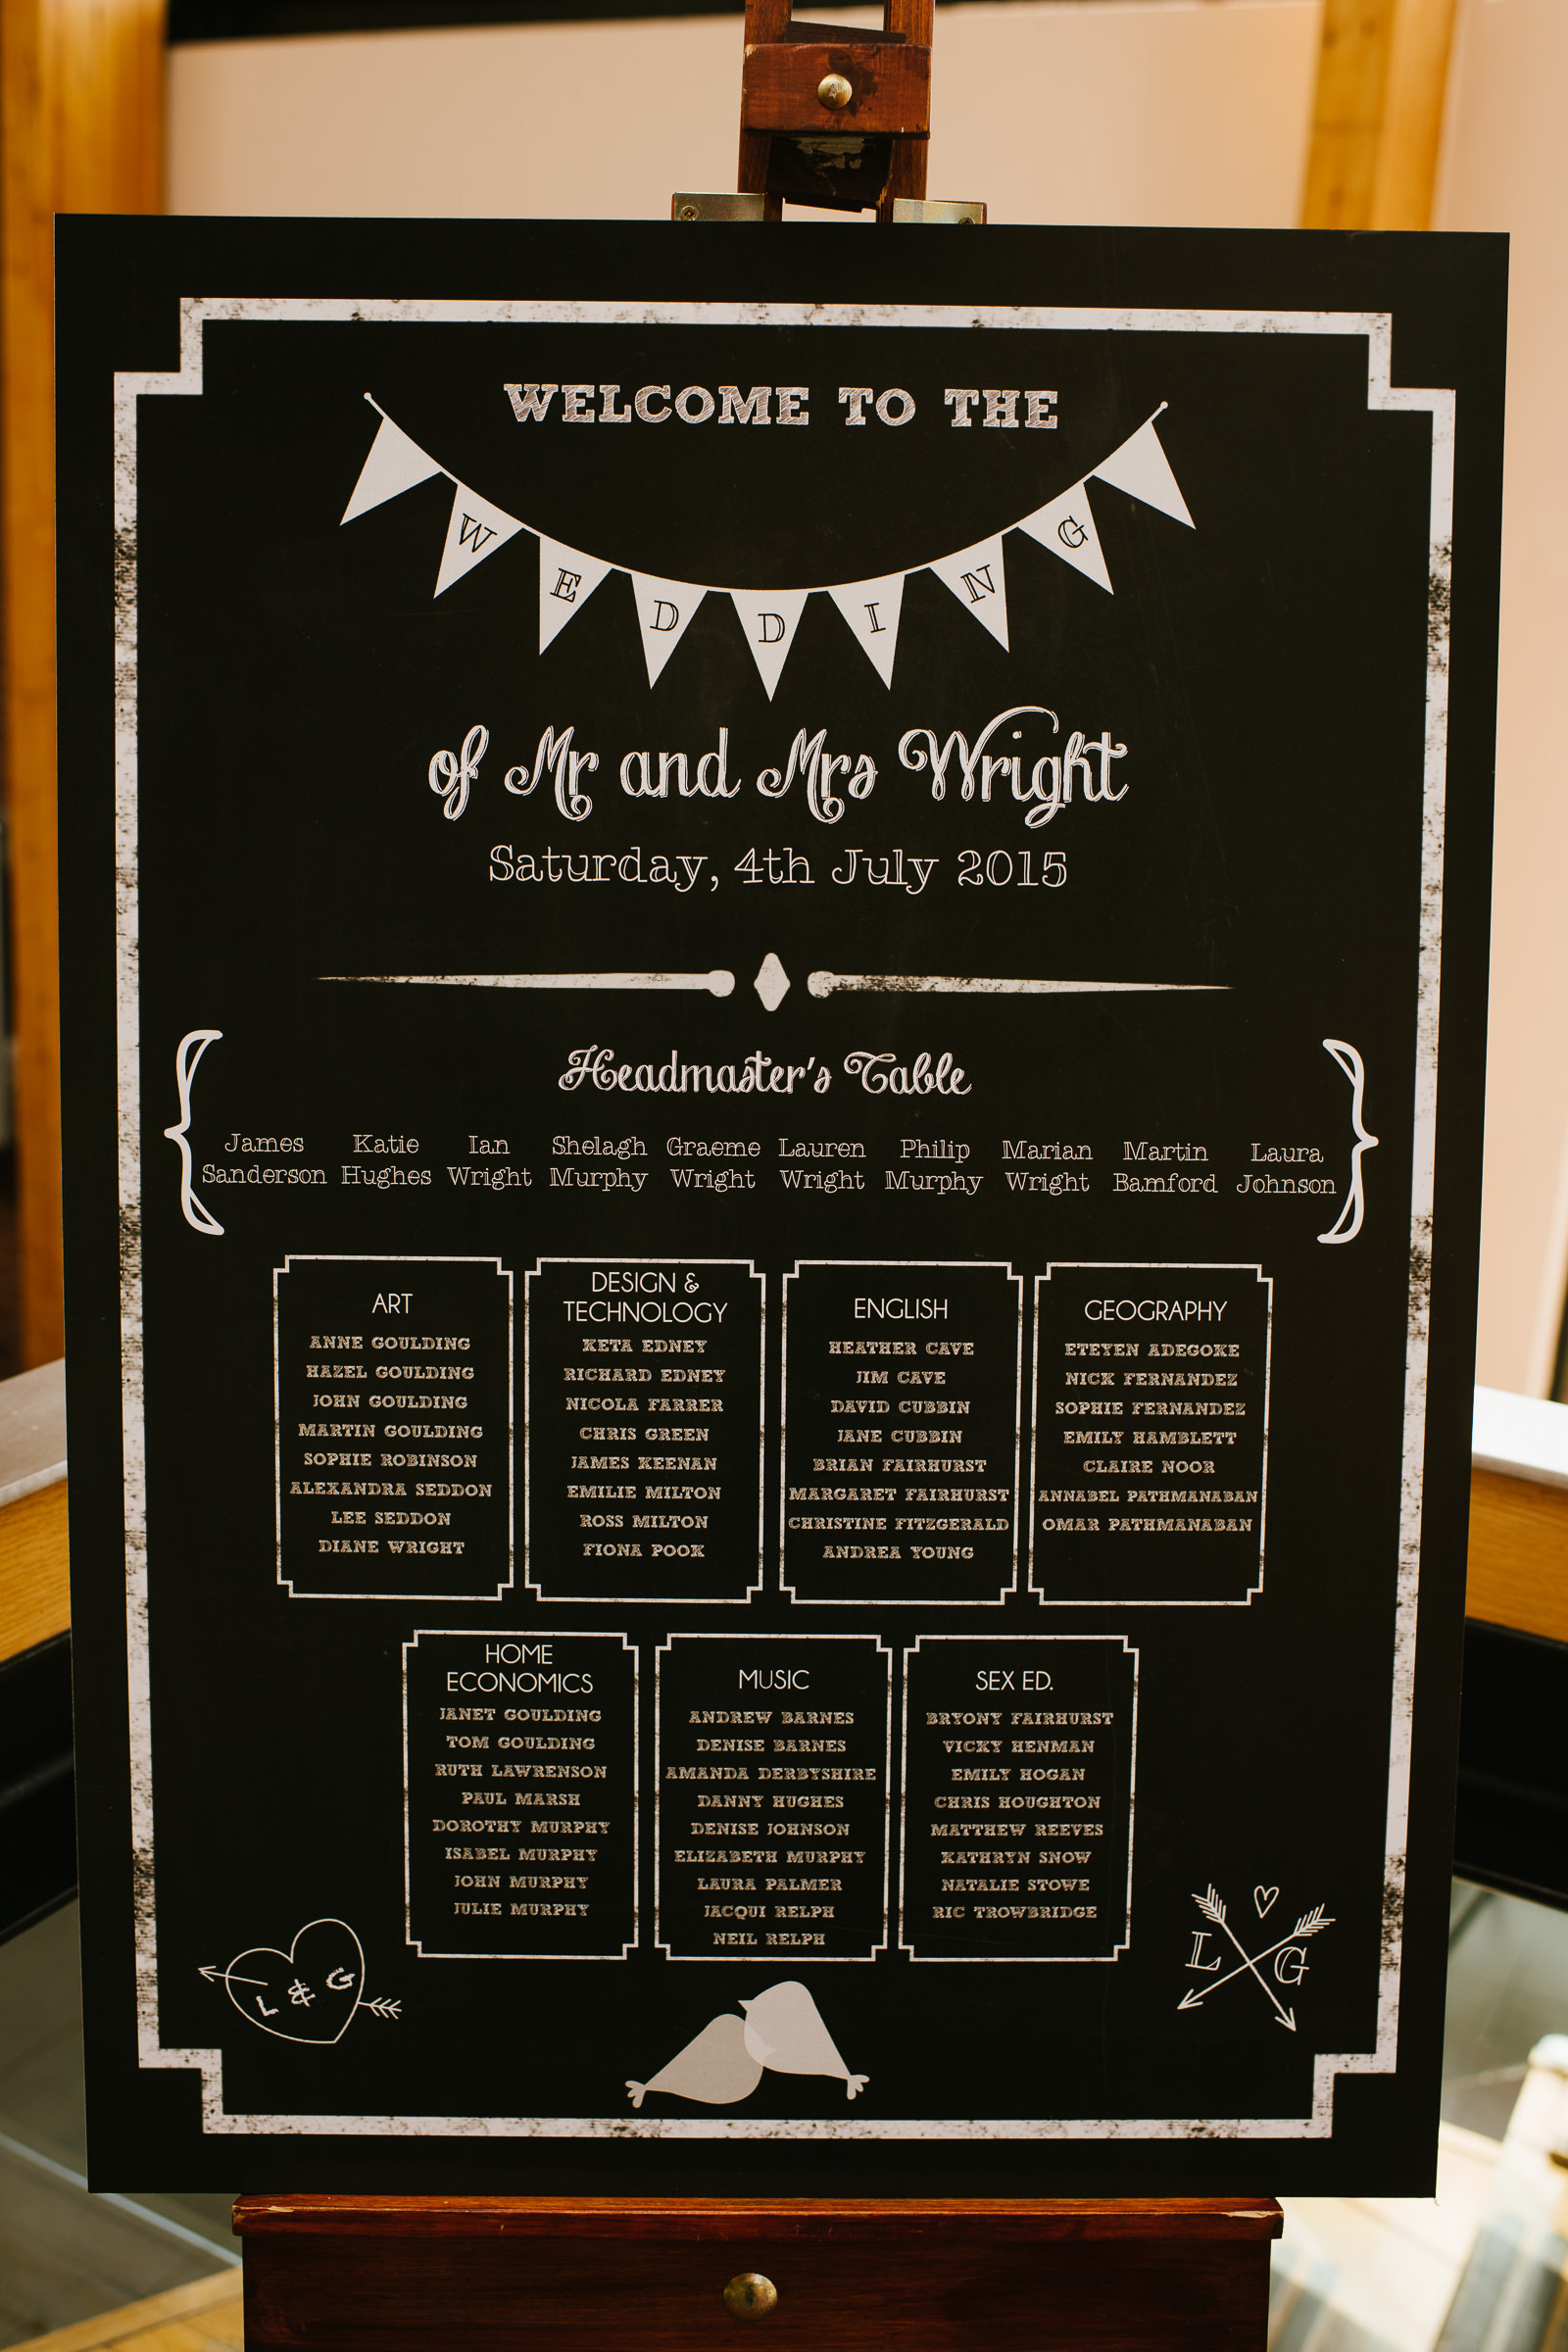 WELCOME TO THE
WEDDING
of Mr and Mrs Wright
Saturday, 4th July 2015
Headmaster's Table
James Sanderson
Katie Hughes
Ian Wright
Shelagh Murphy
Graeme Wright
Lauren Wright
Philip Murphy
Marian Wright
Martin Bamford
Laura Johnson
ART
ANNE GOULDING
HAZEL GOULDING
JOHN GOULDING
MARTIN GOULDING
SOPHIE ROBINSON
ALEXANDRA SEDDON
LEE SEDDON
DIANE WRIGHT
DESIGN &
TECHNOLOGY
KETA EDNEY
RICHARD EDNEY
NICOLA FARRER
CHRIS GREEN
JAMES KEENAN
EMILIE MILTON
ROSS MILTON
FIONA POOK
ENGLISH
HEATHER CAVE
JIM CAVE
DAVID CUBBIN
JANE CUBBIN
BRIAN FAIRHURST
MARGARET FAIRHURST
CHRISTINE FITZGERALD
ANDREA YOUNG
GEOGRAPHY
ETEYEN ADEGOKE
NICK FERNANDEZ
SOPHIE FERNANDEZ
EMILY HAMBLETT
CLAIRE NOOR
ANNABEL PATHMANABAN
OMAR PATHMANABAN
HOME
ECONOMICS
JANET GOULDING
TOM GOULDING
RUTH LAWRENSON
PAUL MARSH
DOROTHY MURPHY
ISABEL MURPHY
JOHN MURPHY
JULIE MURPHY
MUSIC
ANDREW BARNES
DENISE BARNES
AMANDA DERBYSHIRE
DANNY HUGHES
DENISE JOHNSON
ELIZABETH MURPHY
LAURA PALMER
JACQUI RELPH
NEIL RELPH
SEX ED.
BRYONY FAIRHURST
VICKY HENMAN
EMILY HOGAN
CHRIS HOUGHTON
MATTHEW REEVES
KATHRYN SNOW
NATALIE STOWE
RIC TROWBRIDGE
L & G
L G